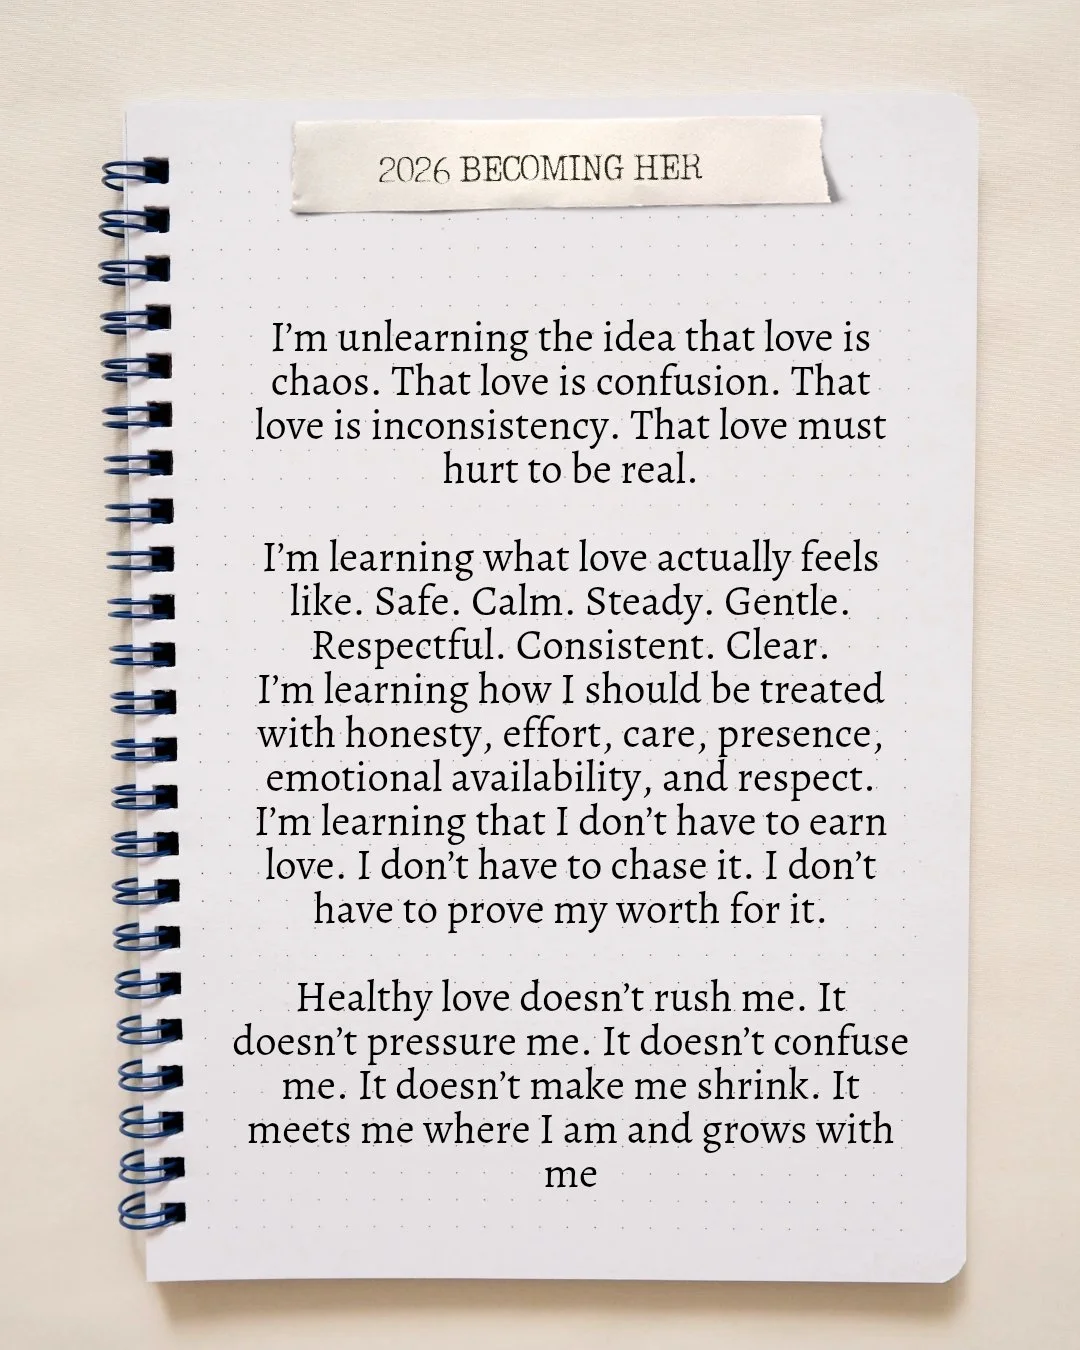 2026 BECOMING HER
I’m unlearning the idea that love is
chaos. That love is confusion. That
love is inconsistency. That love must
hurt to be real.
I’m learning what love actually feels
like. Safe. Calm. Steady. Gentle.
Respectful. Consistent. Clear.
I’m learning how I should be treated
with honesty, effort, care, presence,
emotional availability, and respect.
I’m learning that I don’t have to earn
love. I don’t have to chase it. I don’t
have to prove my worth for it.
Healthy love doesn’t rush me. It
doesn’t pressure me. It doesn’t confuse
me. It doesn’t make me shrink. It
meets me where I am and grows with
me